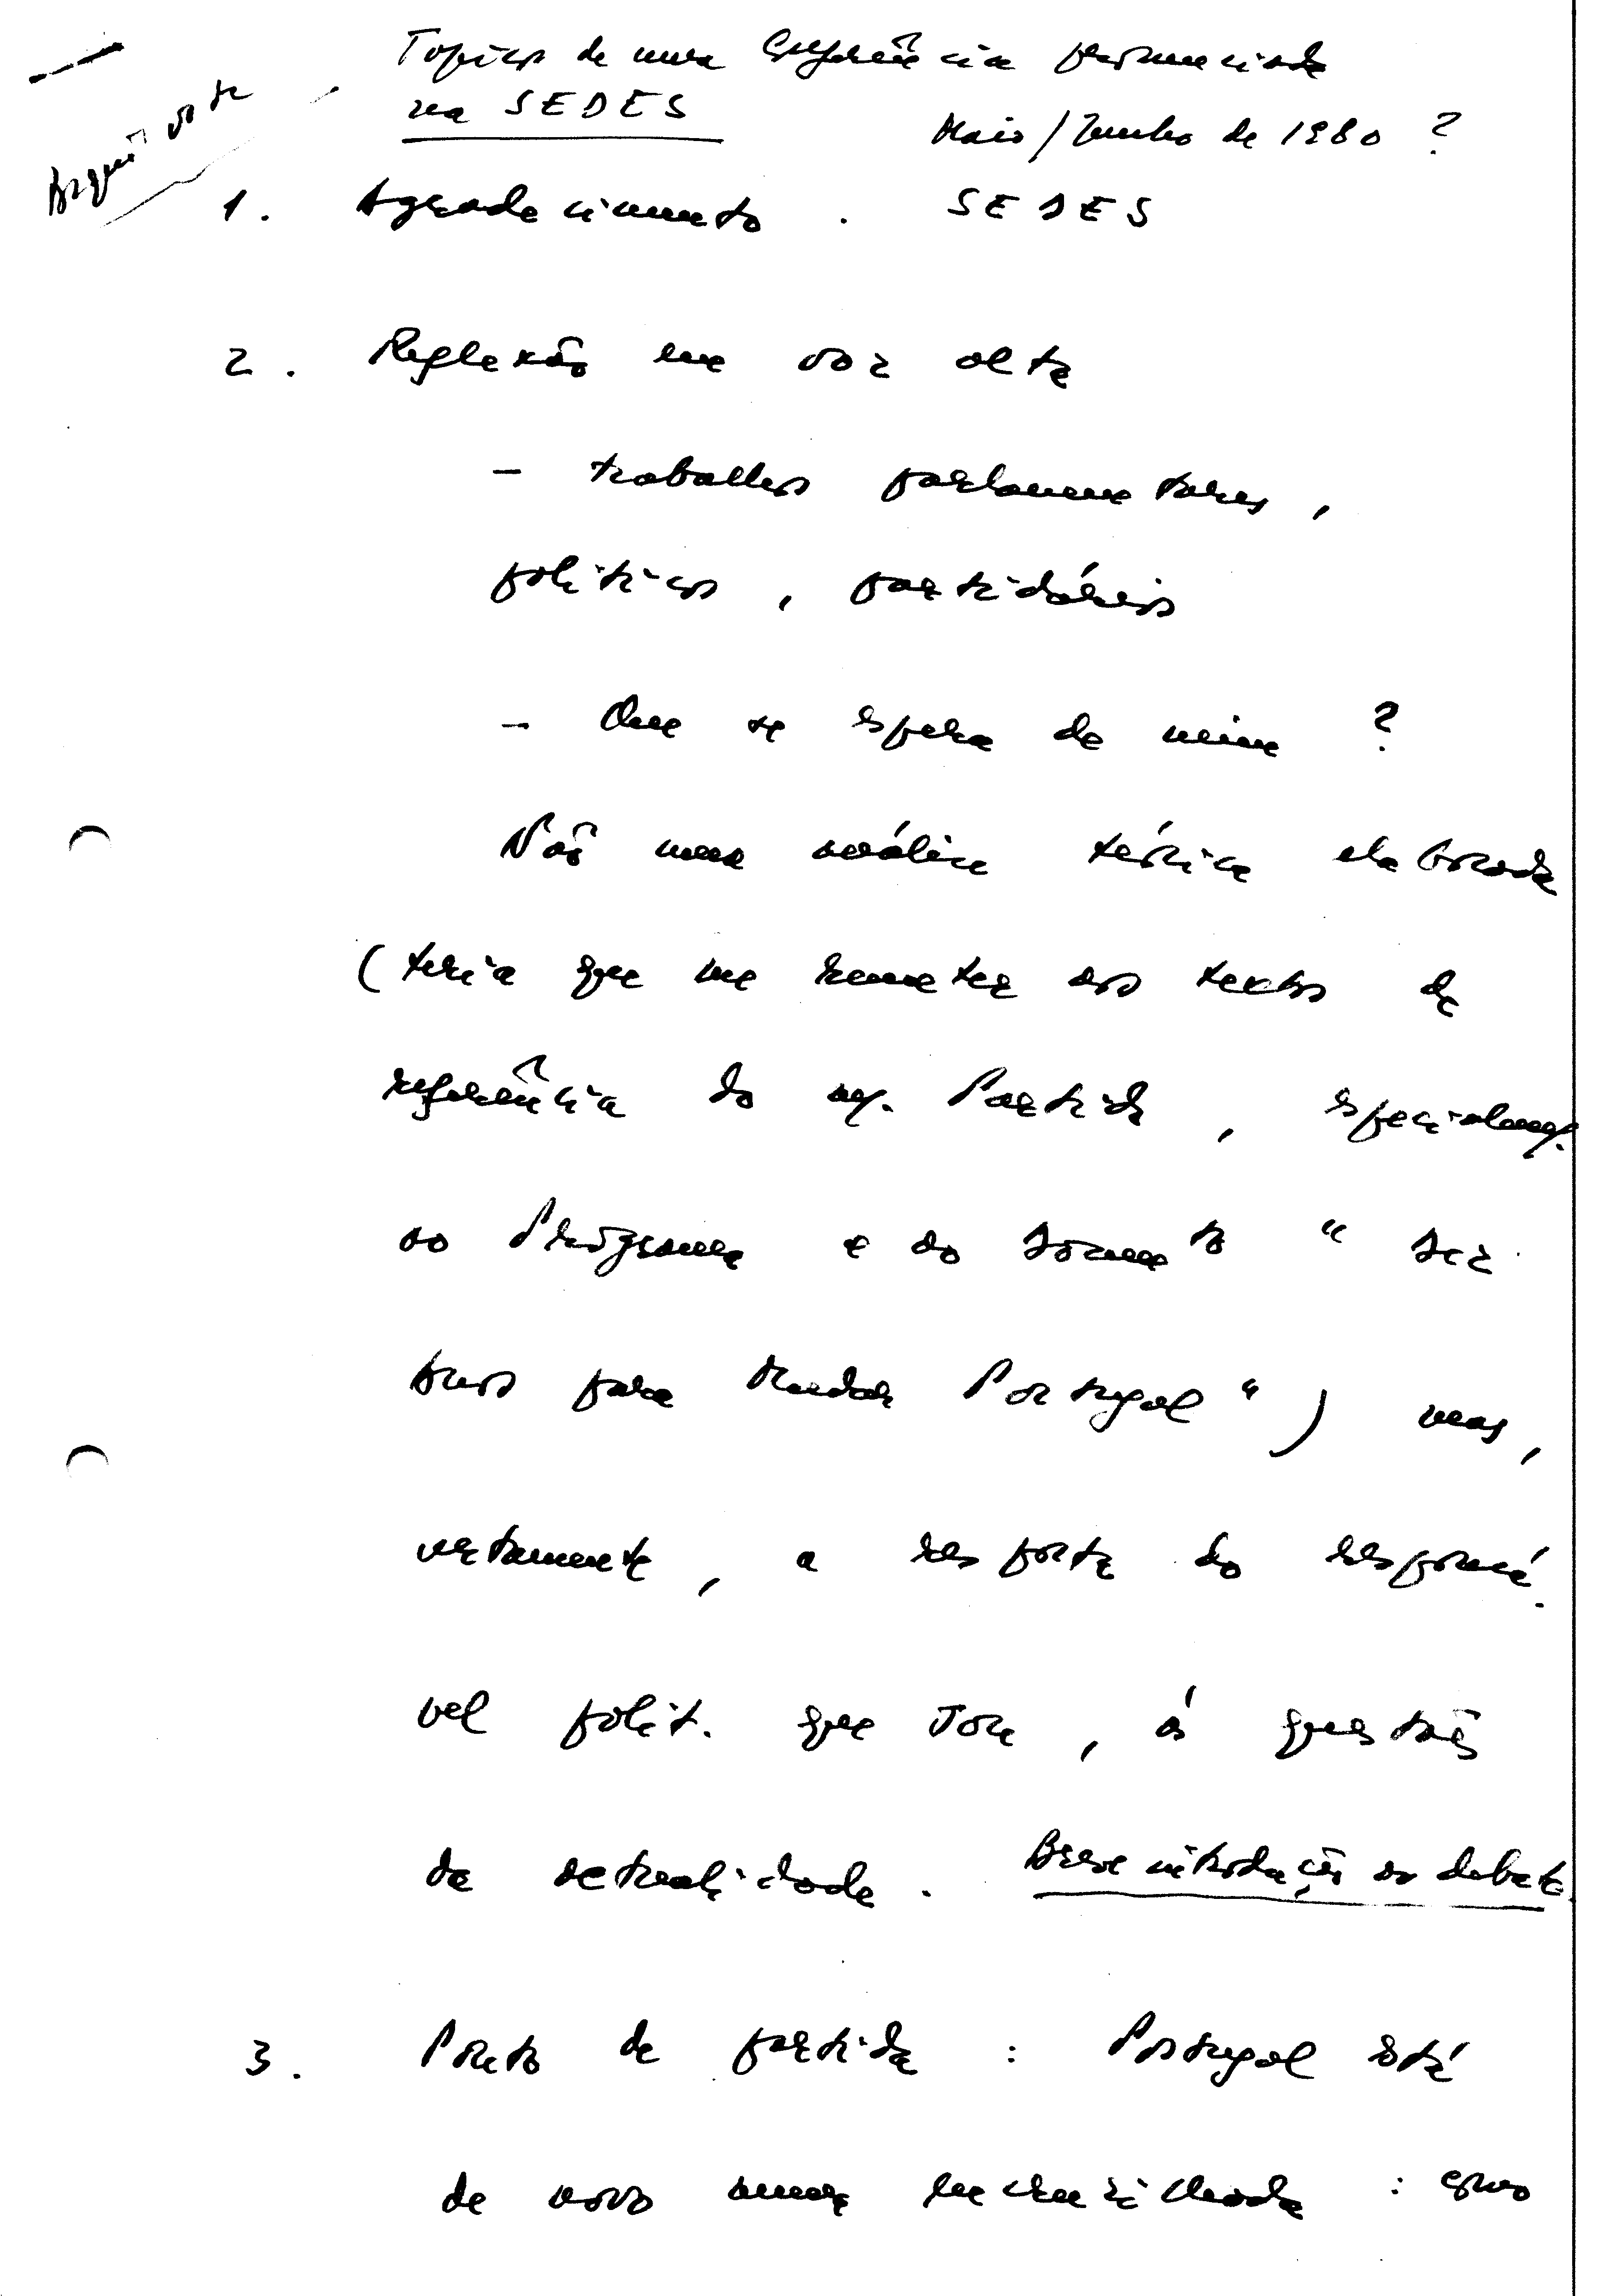 Topicos de uma Conferência pronunciada
na SEDES
Maio/Junho de 1980 ?
1. Agradecimento . SEDES
2. Reflexão em voz alta
- trabalhos parlamentares,
politicos, partidários
- Que se espera de mim ?
Não uma análise teórica elaborada
(teria que me remeter aos textos de
referência do m/. Partido, especialmt.
ao Programa e ao documto "Dez
anos para mudar Portugal") mas,
certamente, a resposta do responsá-
vel polit. que sou, ás questões
da actualidade. Breve introdução ao debate.
3. Ponto de partida : Portugal está
de novo numa encruzilhada : como